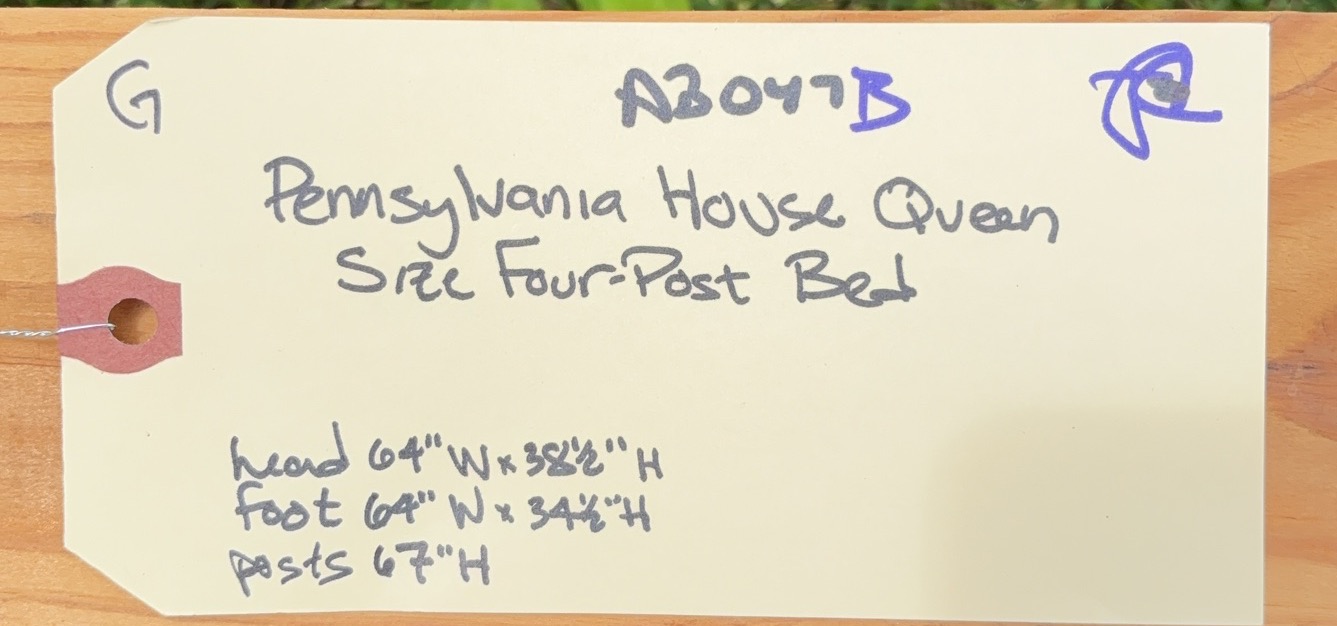 G
A3047B
Pennsylvania House Queen
Size Four-Post Bed
head 64" W x 38½" H
foot 64" W x 34½" H
posts 67" H